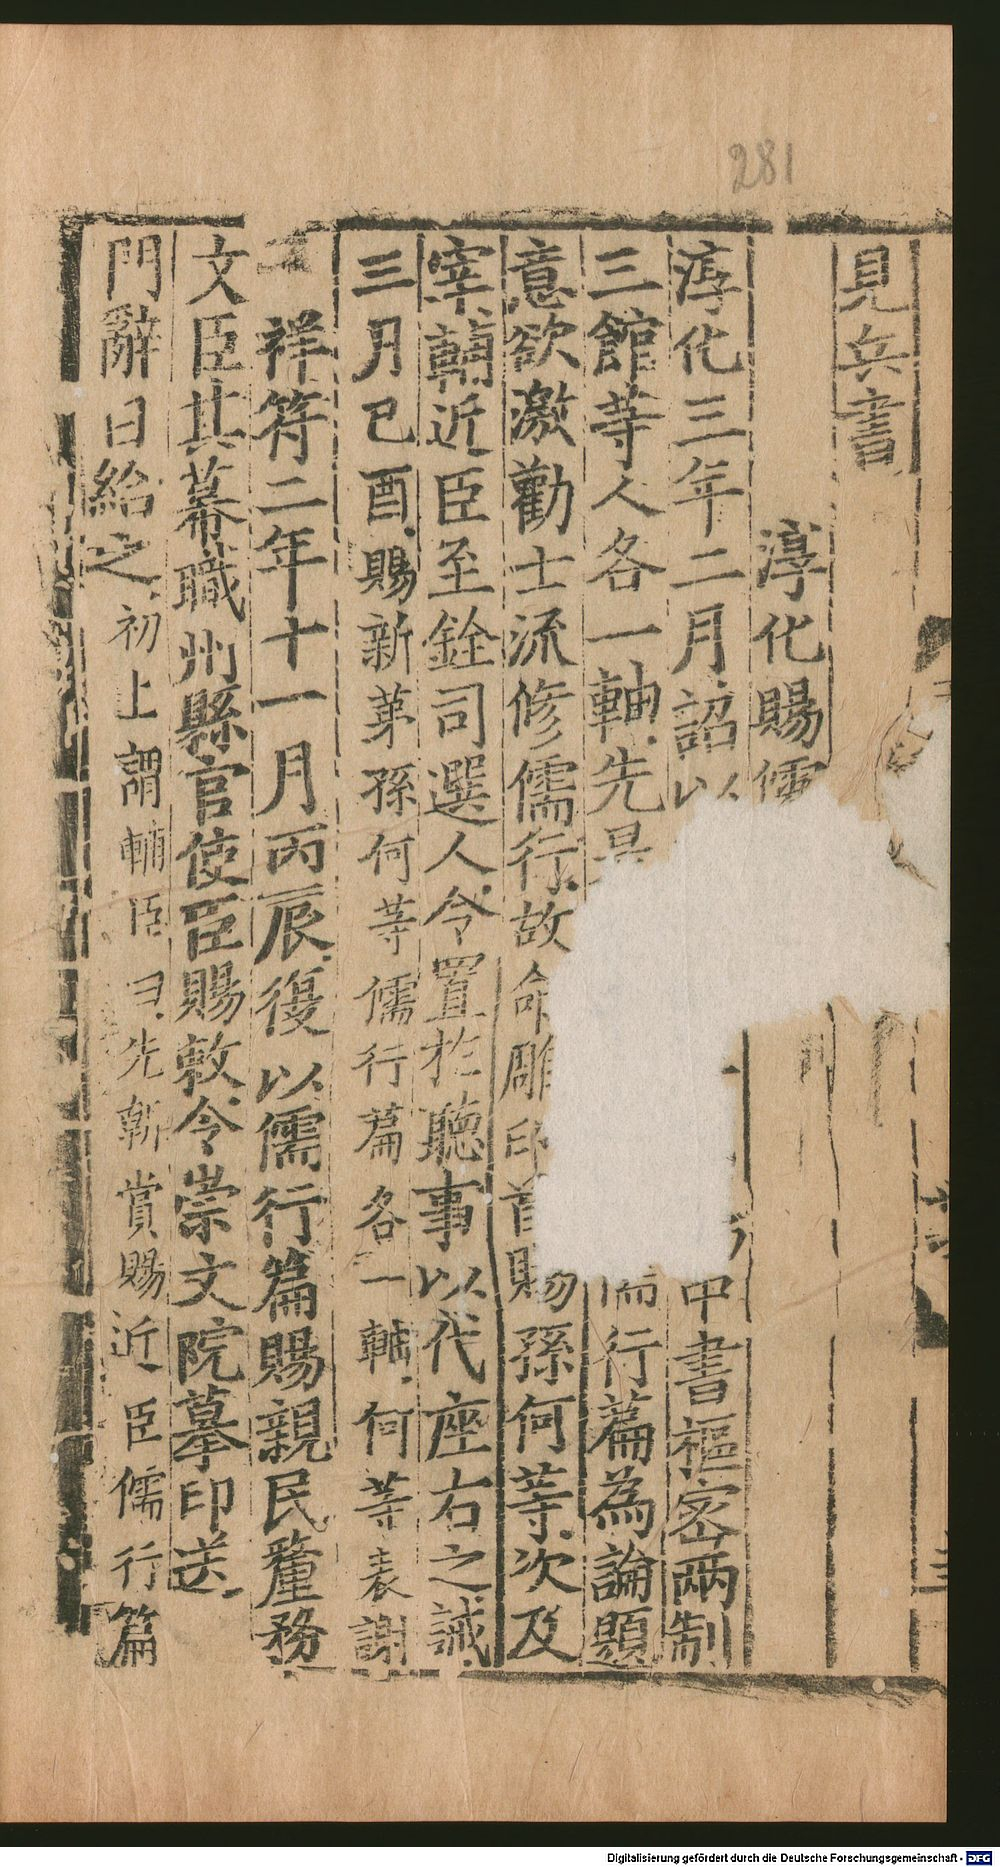 281
見兵書
淳化賜儒
淳化三年二月詔以 中書樞密兩制
三館等人各一軸先是 儒行篇為論題
意欲激勸士流修儒行故命雕印首賜孫何等次及
宰輔近臣至銓司選人令置於聽事以代座右之誡
三月己酉賜新第孫何等儒行篇各一軸何等表謝
祥符二年十一月丙辰復以儒行篇賜親民釐務
文臣其幕職州縣官使臣賜敕令崇文院摹印送
門辭日給之初上謂輔臣曰先朝賞賜近臣儒行篇
Digitalisierung gefördert durch die Deutsche Forschungsgemeinschaft - DFG